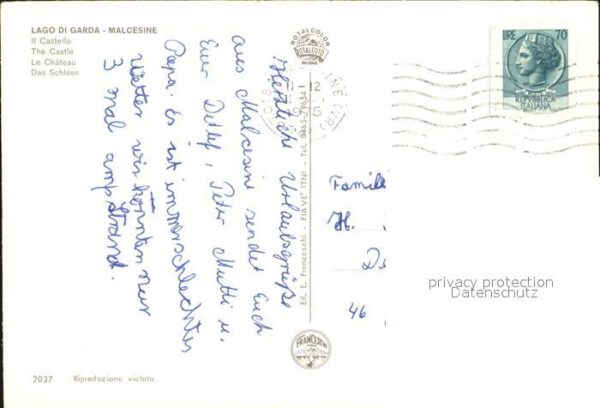 LAGO DI GARDA - MALCESINE
Il Castello
The Castle
Le Château
Das Schloss
Herzliche Urlaubsgrüße
aus Malcesine sendet Euch
Euer Detlef, Peter Mutti u.
Papa. Es ist immer schlechtes
Wetter wir konnten nur
3 mal am Strand.
ROTALCOLOR
ROTALFOTO
MILANO
Ed. E. Franceschi - FIAVÉ (TN) - Tel. 0465-79634
FRANCESCHI
LIRE 70
POSTE
REPVBBLICA
ITALIANA
Famili
H.
D
46
privacy protection
Datenschutz
2037 Riproduzione vietata